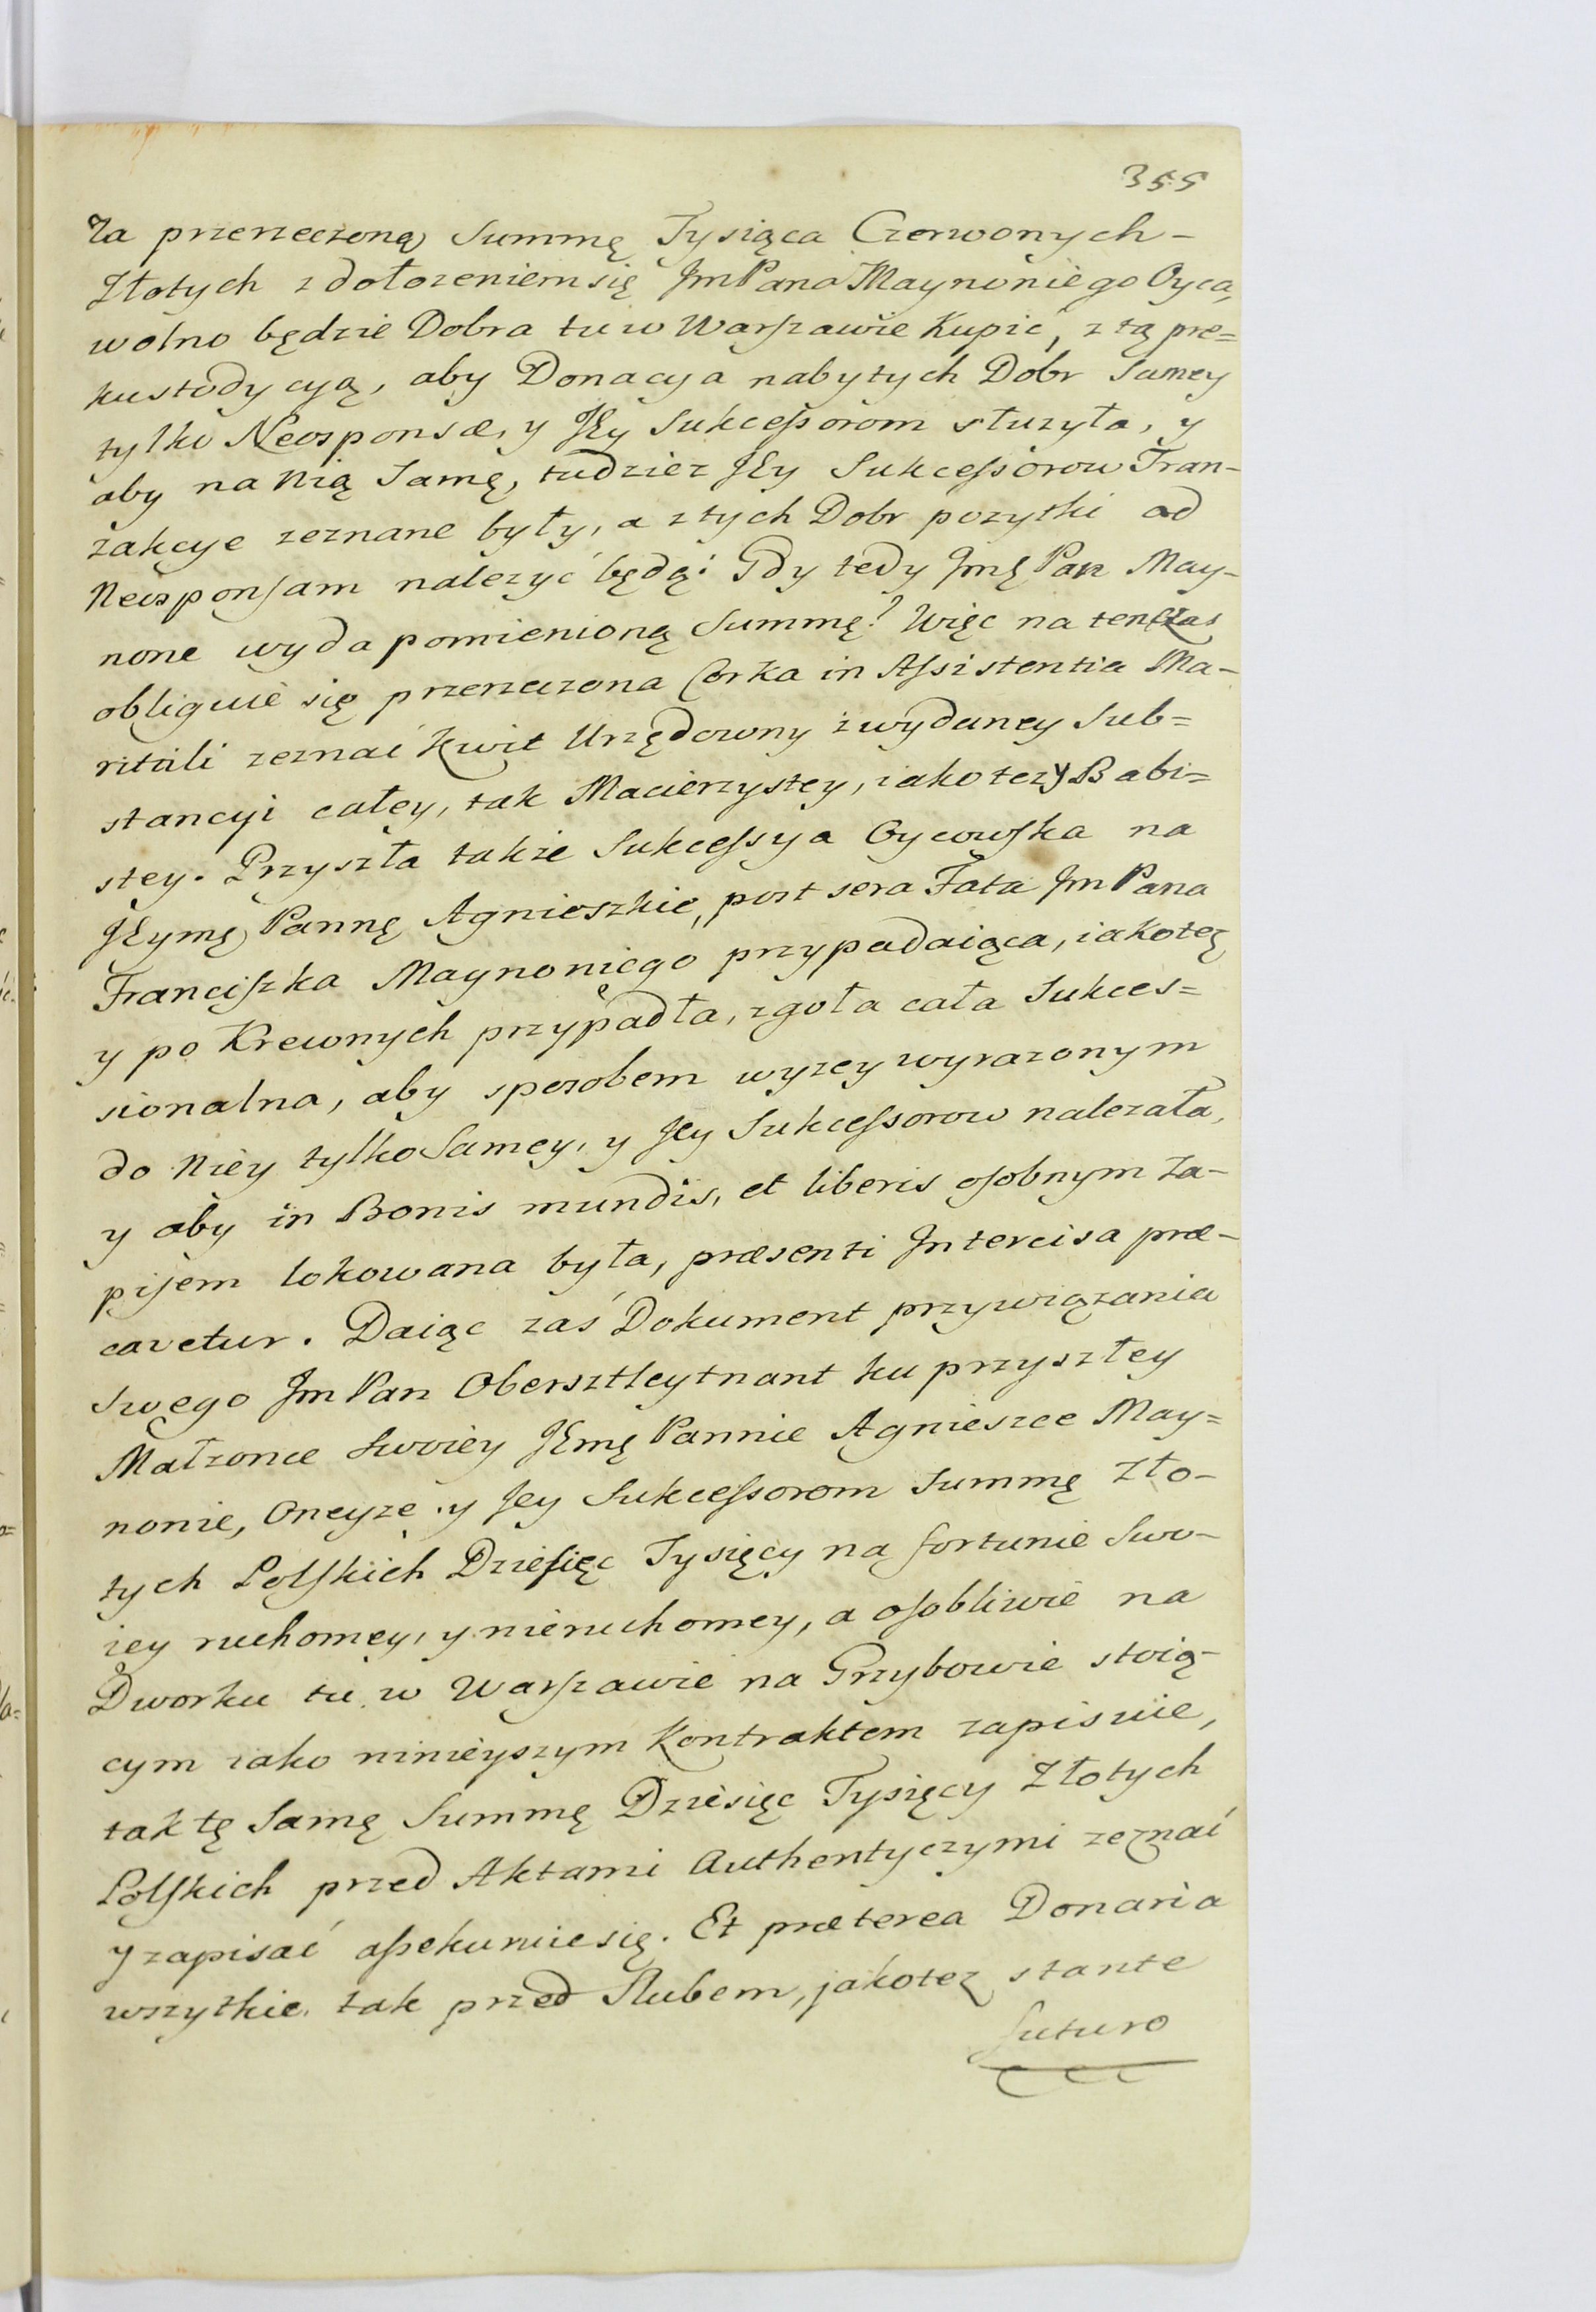 355
Za przerzeczoną Summę Tysiąca Czerwonych-
Złotych z dołozeniem się JmPana Maynoniego Oyca,
wolno będzie Dobra tu w Warszawie Kupić, z tą pre=
kustodycyą, aby Donacya nabytych Dobr Samey
tylko Neosponsæ, y JEy Sukcessorom słuzyła, y
aby na Nią Samę, tudziez JEy Sukcessorow Tran-
zakcye zeznane były, a z tych Dobr pozytki ad
Neosponsam nalezyć będą: Gdy tedy Jmę Pan May-
none wyda pomienioną Summę? Więc na tenczas
obliguie się przerzeczona Corka in Assistentia Ma-
ritali zeznać Kwit Urzędowny z wydaney Sub=
stancyi całey, tak Macierzystey, iako tez y Babi=
stey. Przyszła takze Sukcessya Oycowska na
JEymę Pannę Agnieszkie, post sera Fata Jm Pana
Franciszka Maynoniego przypadaiąca, iakotez
y po Krewnych przypadła, zgoła cała Sukces=
sionalna, aby sposobem wyzey wyrazonym
do Niey tylko Samey, y Jey Sukcessorow nalezała,
y aby in Bonis mundis, et liberis osobnym Za-
pisem lokowana była, præsenti Intercisa præ-
cavetur. Daiąc zaś Dokument przywiązania
Swego Jm Pan Obersztleytnant ku przyszłey
Małzonce Swoiey JEmę Pannie Agnieszce May=
nonie, Oneyze y Jey Sukcessorom Summę Zło-
tych Polskich Dziesięc Tysięcy na fortunie Swo-
iey ruchomey, y nieruchomey, a osobliwie na
Dworku tu w Warszawie na Grzybowie stoią-
cym iako ninieyszym Kontraktem zapisuie,
tak tę Samę Summę Dziesięc Tysięcy Złotych
Polskich przed Aktami Authentyczymi zeznać
y zapisać assekuruie się. Et præterea Donaria
wszytkie, tak przed Slubem, jakotez stante
futuro